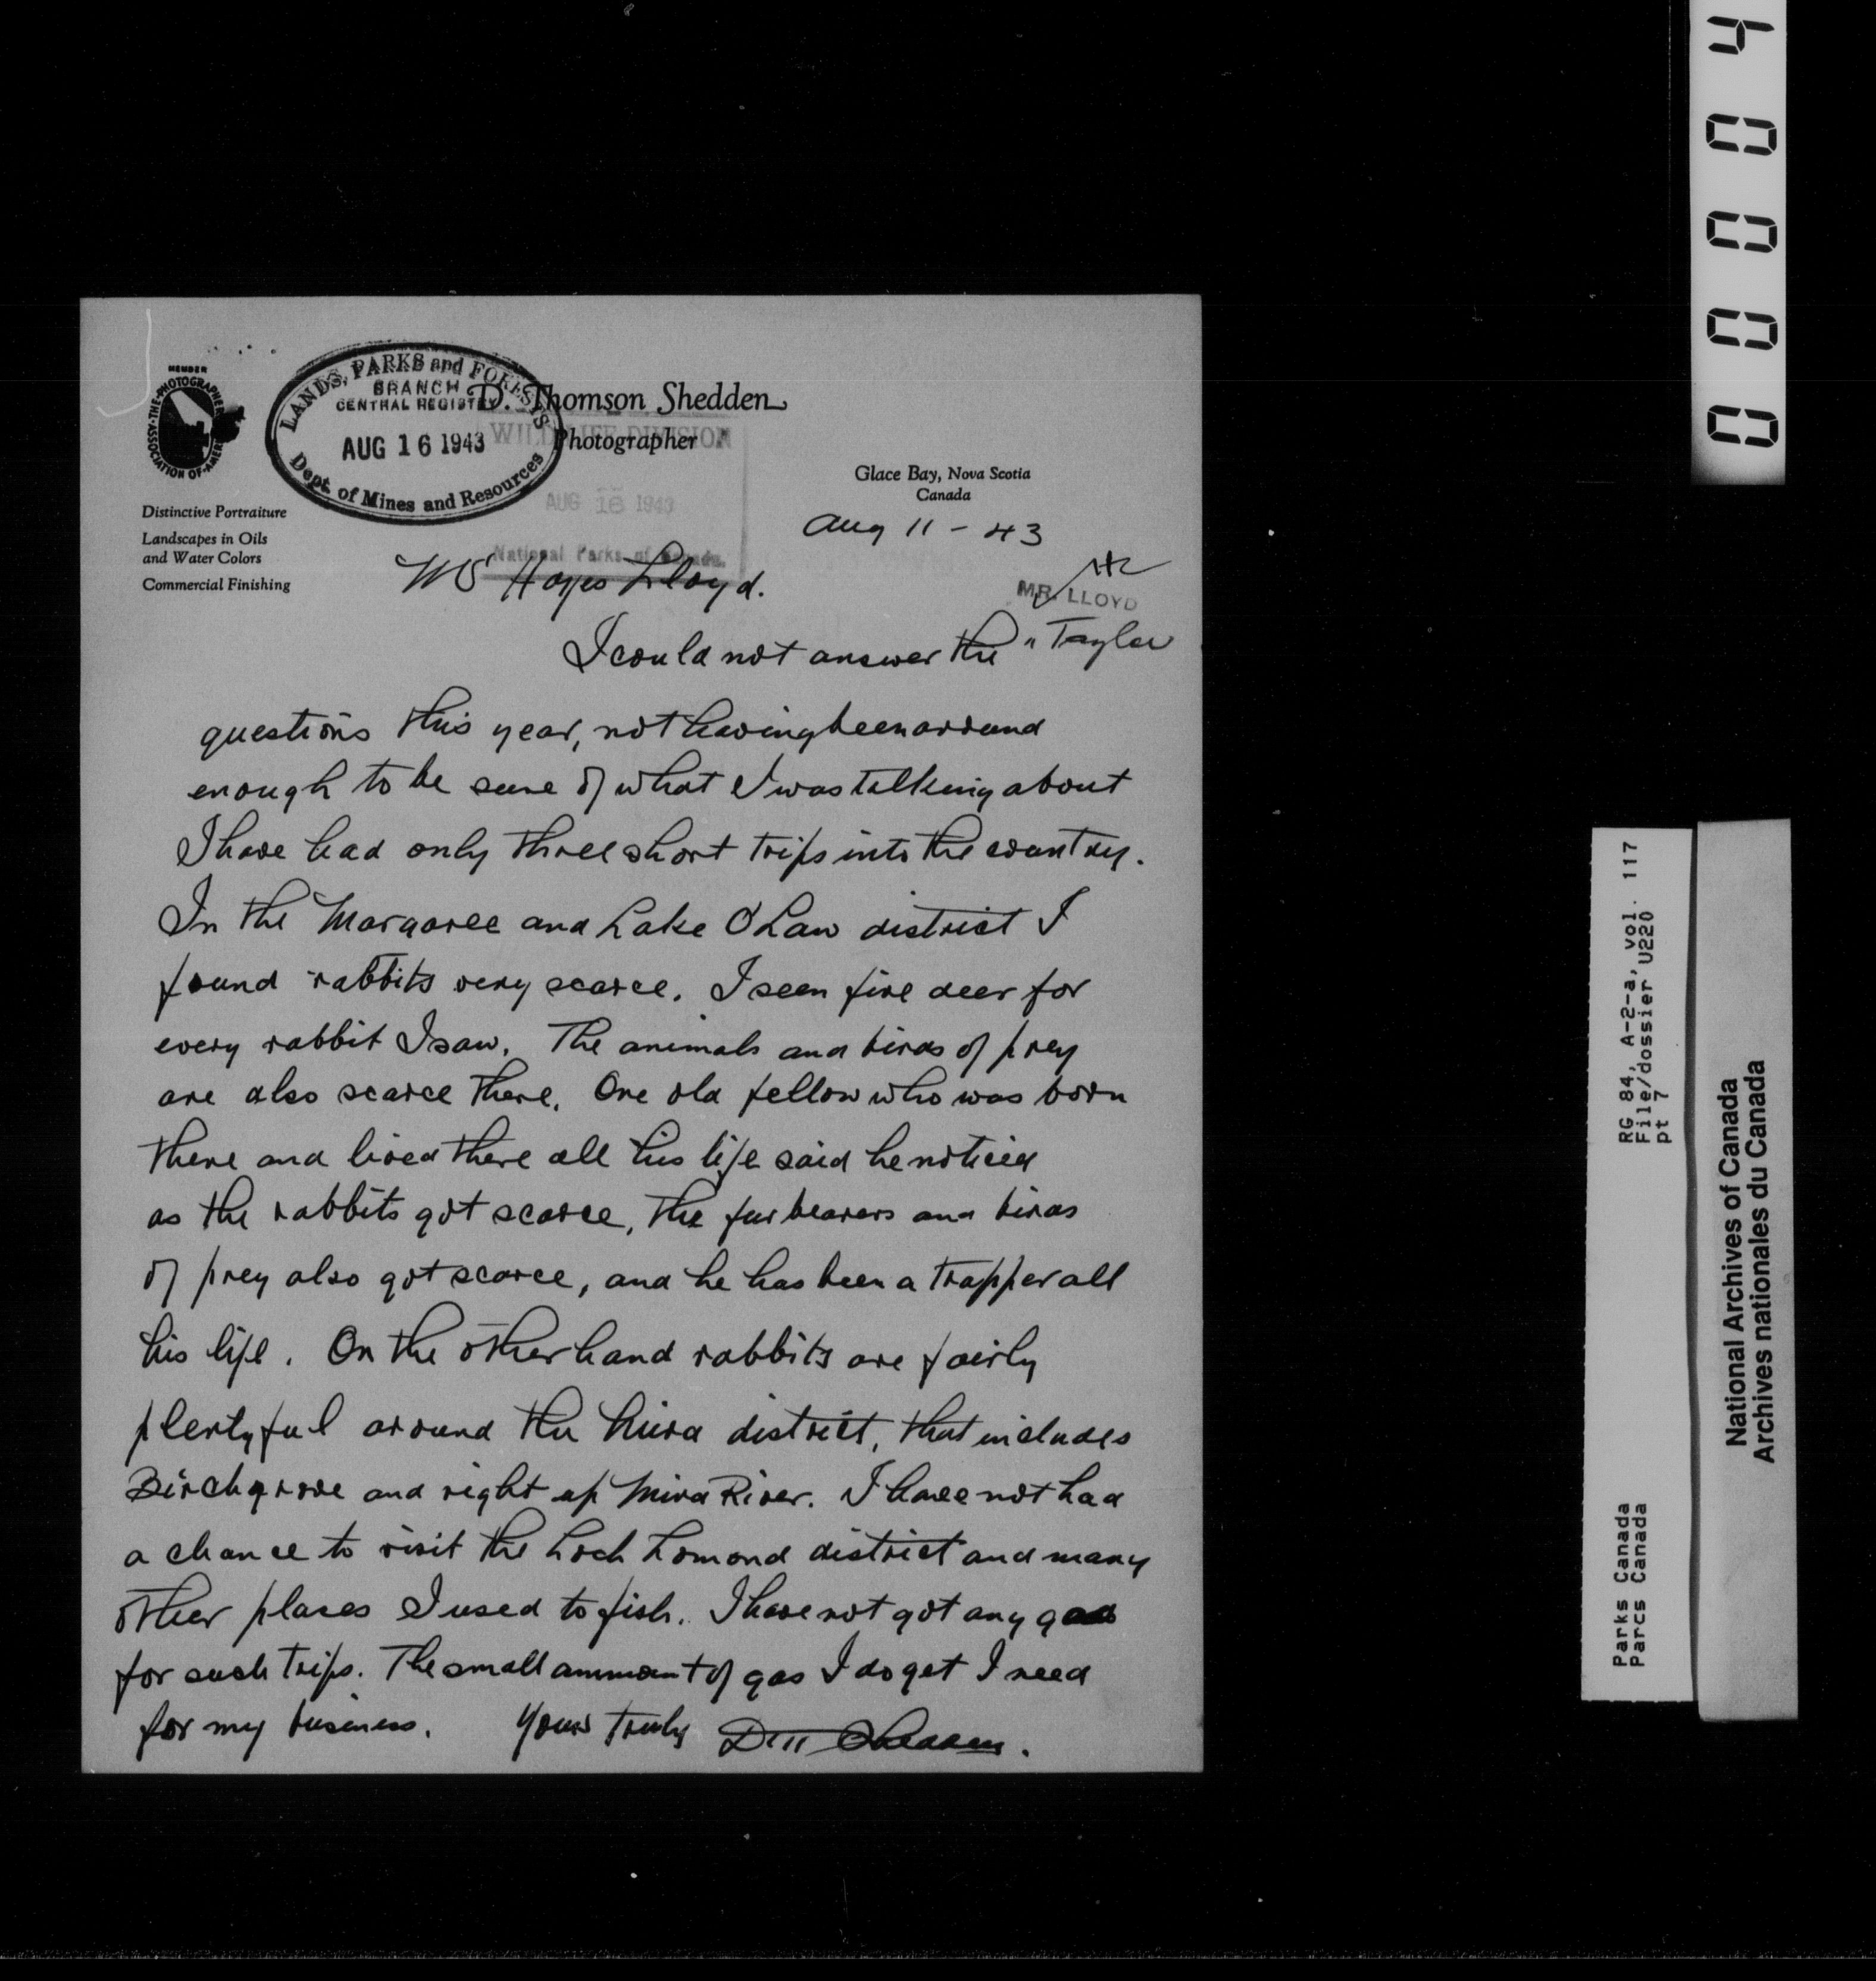 MEMBER
THE PHOTOGRAPHERS ASSOCIATION OF AMERICA
LANDS, PARKS and FORESTS
BRANCH
CENTRAL REGISTRY
AUG 16 1943
Dept. of Mines and Resources
D. Thomson Shedden
Photographer
WILDLIFE DIVISION
AUG 16 1943
National Parks of Canada.
Glace Bay, Nova Scotia
Canada
Distinctive Portraiture
Landscapes in Oils
and Water Colors
Commercial Finishing
Aug 11 - 43
Mr Hoyes Lloyd.
MR. LLOYD
" Taylor
I could not answer the
questions this year, not having been around
enough to be sure of what I was talking about
I have had only three short trips into the country.
In the Margaree and Lake O Law district I
found rabbits very scarce. I seen five deer for
every rabbit I saw. The animals and birds of prey
are also scarce there. One old fellow who was born
there and lived there all his life said he noticed
as the rabbits got scarce, the fur bearers and birds
of prey also got scarce, and he has been a trapper all
his life. On the other hand rabbits are fairly
plentyful around the Mira district, that includes
Birchgrove and right up Mira River. I have not had
a chance to visit the Loch Lomond district and many
other places I used to fish. I have not got any gas
for such trips. The small ammount of gas I do get I need
for my business. Yours truly D T Shedden.
00004
RG 84, A-2-a, vol. 117
File/dossier U220
pt 7
Parks Canada
Parcs Canada
National Archives of Canada
Archives nationales du Canada